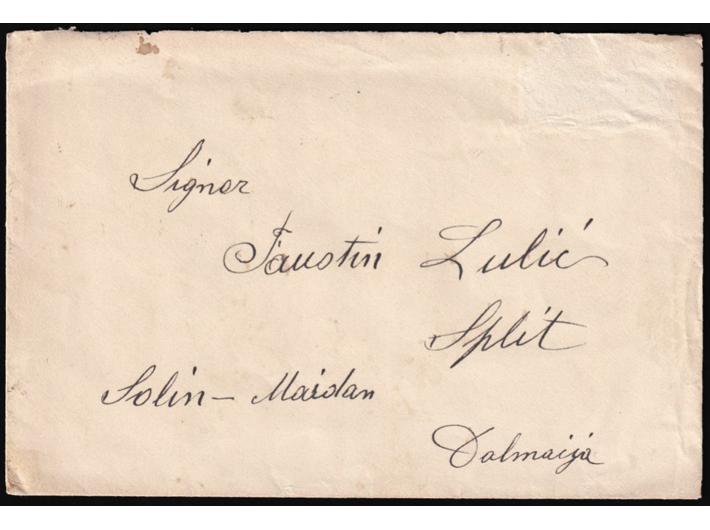 Signor
Faustin Lulić
Split
Solin - Maidan
Dalmaija